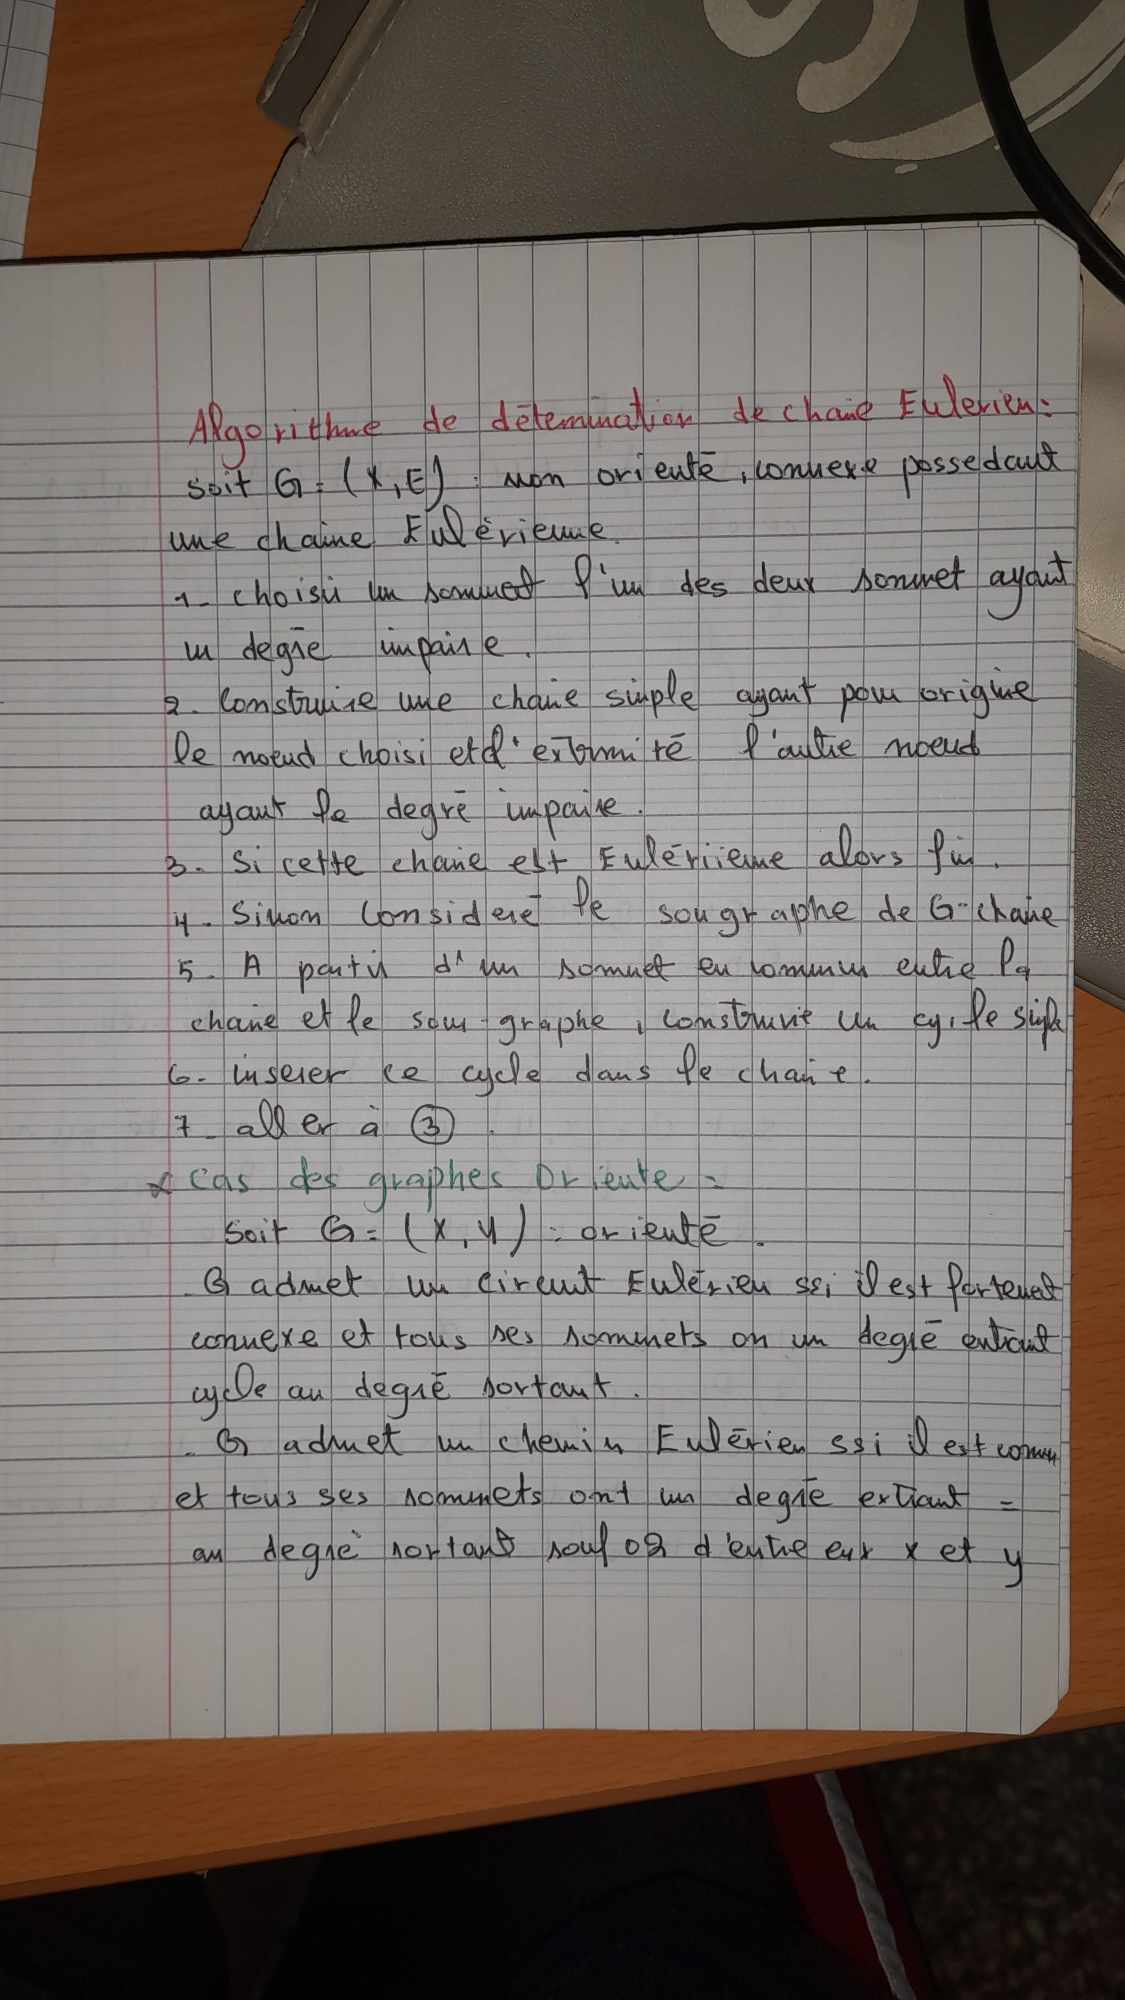 Algorithme de détemination de chaie Eulerien:
soit G = (X, E) : non orienté, connexe possedant
une chaine Eulérienne.
1- choisir un sommet l'un des deux sommet ayant
un degrée impaire.
2. Construire une chaie simple ayant pour origine
le noeud choisi et d'extrmité l'autre noeud
ayant le degré impaire.
3. Si cette chaine est Euleriienne alors fin.
4. Sinon Consideré le sougraphe de G-chaine
5. A partir d'un sommet en commun entre la
chaine et le sous-graphe, construire un cycle simple
6. inserer ce cycle dans le chaine.
7- aller à ③.
x Cas des graphes Oriente =
Soit G = (X, Y) : orienté.
. G admet un circuit Eulérien ssi il est fortement
connexe et tous ses sommets on un degré entrant
cycle au degré sortant.
. G admet un chemin Eulérien ssi il est
et tous ses sommets ont un degrée extrant =
au degré sortant souf 02 d'entre eux x et y